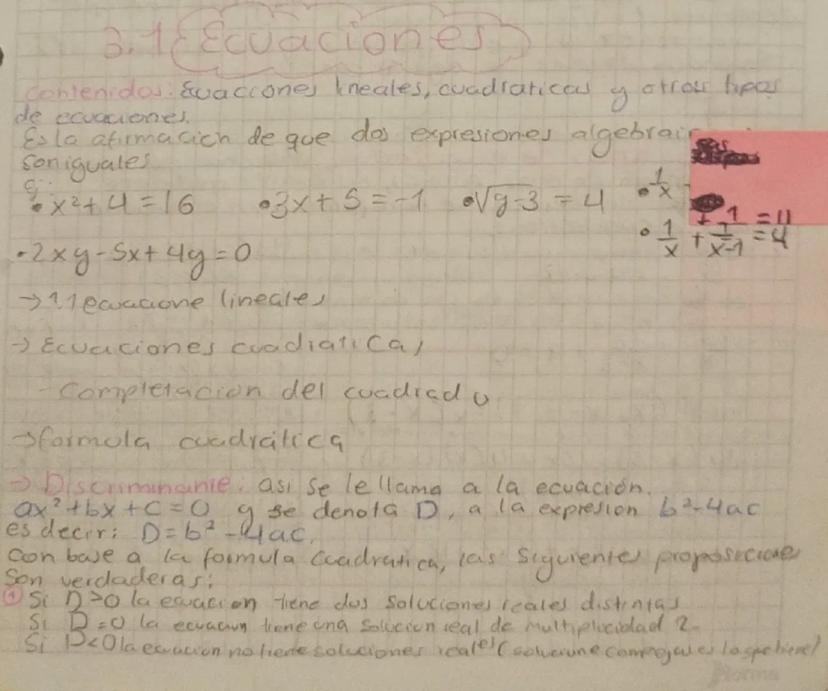 3.1 Ecuaciones
Contenidos: Ecuaciones lineales, cuadraticas y otros tipos
de ecuaciones.
Es la afirmación de que dos expresiones algebraic
son iguales
• x² + 4 = 16 • 3x + 5 = -1 • √y-3 = 4 • 1/x
+ 1 = 4
• 1/x + 1/x-1 = 4
• 2xy - 5x + 4y = 0
→ lineales
→ Ecuaciones cuadratica
- Completacion del cuadrado
→ formula cuadrática
→ Discriminante: asi se le llama a la ecuación.
ax² + bx + c = 0 y se denota D, a la expresion b² - 4ac
es decir: D = b² - 4ac.
Con base a la formula cuadratica, las siguientes proposiciones
son verdaderas:
① Si D > 0 la ecuacion tiene dos soluciones reales distintas
Si D = 0 la ecuacion tiene una solucion real de multiplicidad 2
Si D < 0 la ecuacion no tiene soluciones reales
Norma